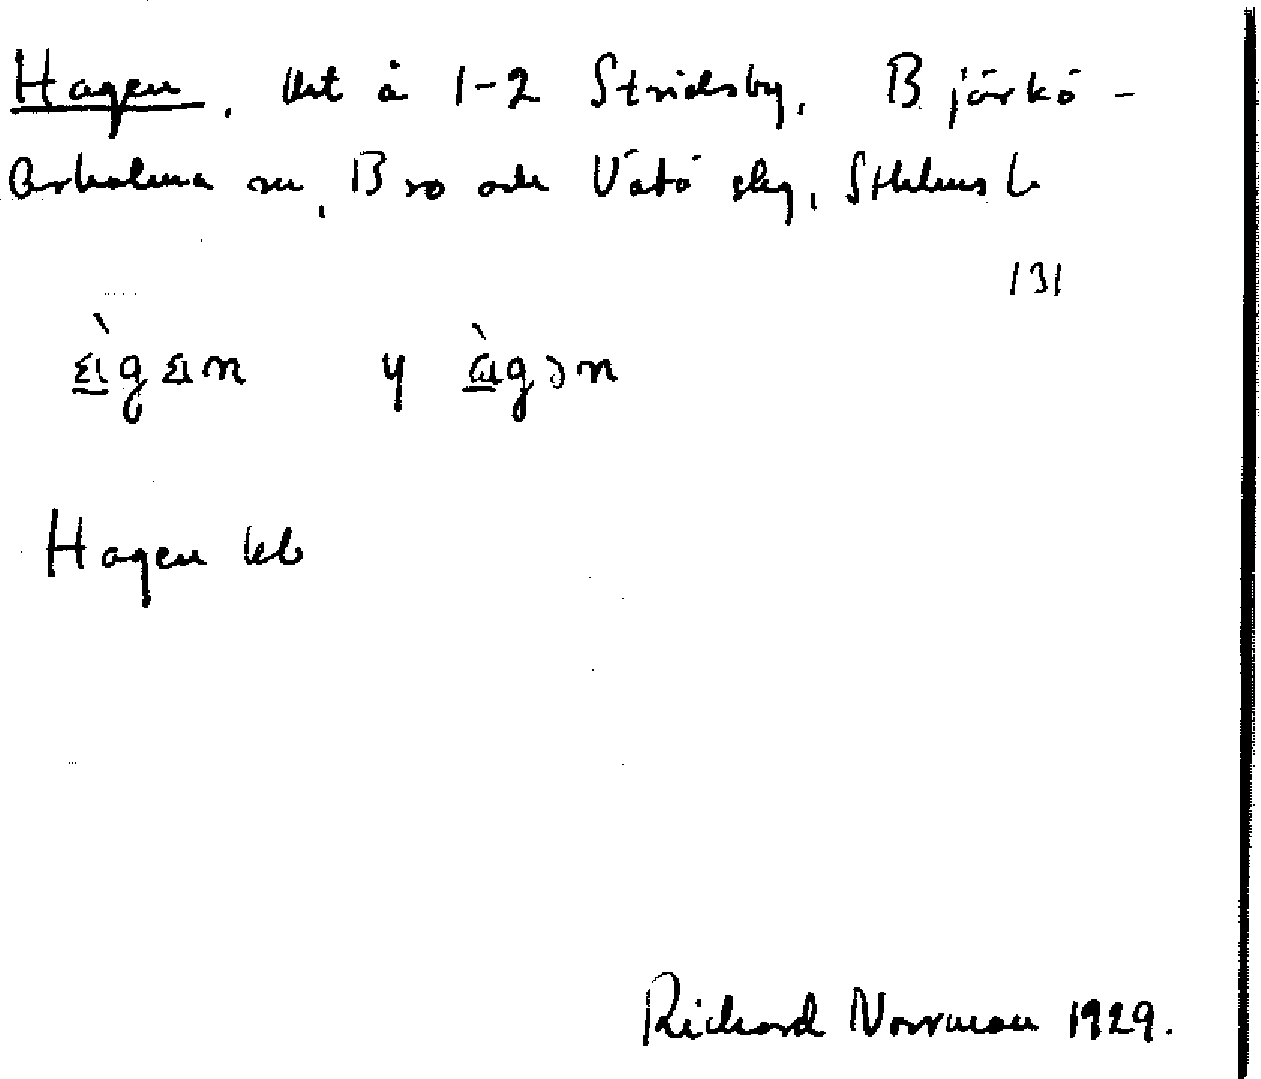 Hagen, lht å 1-2 Stridsby, Björkö-
Arholma sn, Bro och Vätö skg, Sthlms l.
131
y
Hagen kb
Richard Norrman 1929.